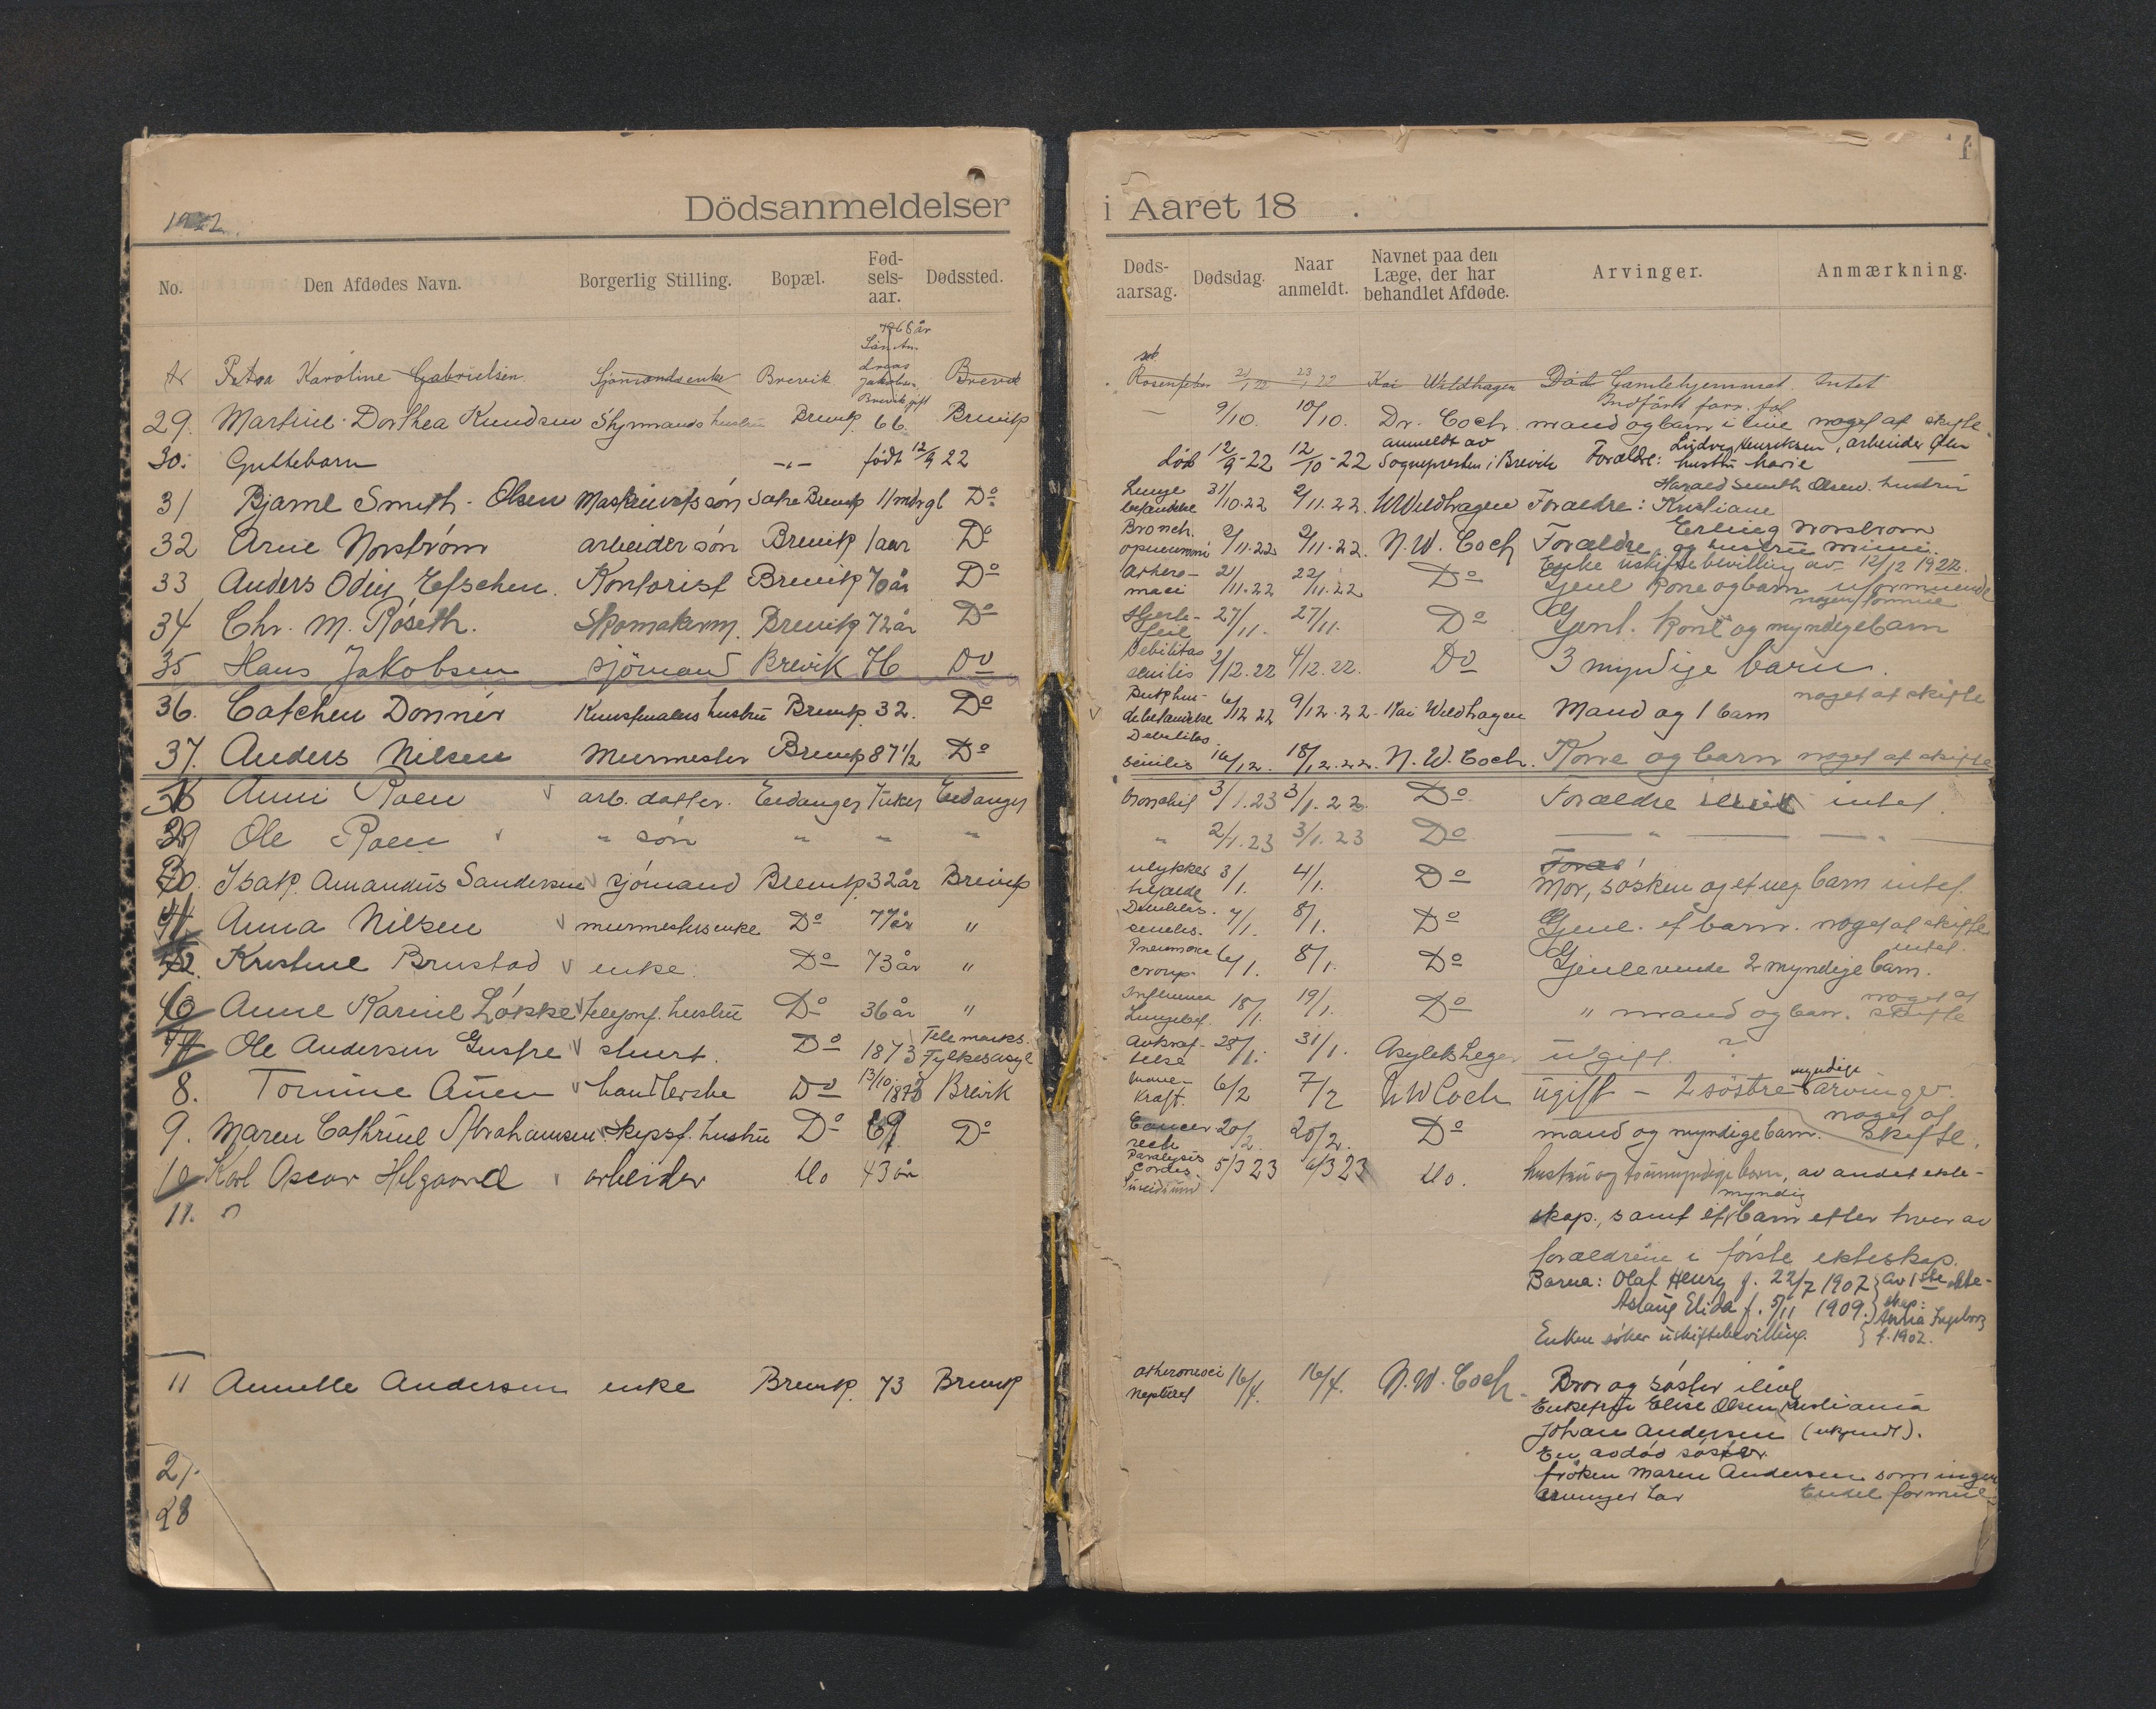 1922
Dödsanmeldelser
i Aaret 18 .
No. Den Afdødes Navn. Borgerlig Stilling. Bopæl. Fød- sels- aar. Dødssted.
Døds- aarsag. Dødsdag. Naar anmeldt. Navnet paa den Læge, der har behandlet Afdøde. Arvinger. Anmærkning.
Petra Karoline Gabrielsen Sjömandsenke Brevik 68 år Brevik 21/1 22 23/1 22 Kai Wildhagen Död Gamlehjemmet. Intet
Indført forr. fol
29. Martine Dorthea Knudsen Styrmands hustru Brevik 66. Brevik — 9/10. 10/10. Dr. Coch. mand og barn i live noget at skifte
30. Guttebarn -"- født 12/9 22 død 12/9-22 12/10-22 anmeldt av Sognepresten i Brevik Forældre: Ludvig Henriksen, arbeider Øen hustru Marie
31 Bjarne Smith-Olsen Maskinists søn Brevik 11 mdr gl Do Lunge betændelse 31/10.22 2/11.22. Wildhagen Forældre: Harald Smith Olsen. hustru Kristiane
32 Arne Norstrøm arbeider søn Brevik 1 aar Do Bronch. opneumoni 9/11-22 9/11-22. N. W. Coch Forældre Erling Norstrøm og hustru Minni.
33 Anders Odin Eschen. Kontorist Brevik 70 år Do 21/11.22 22/11.22 Do Enke uskiftebevilling av 12/12 1922. Gjenl kone og barn uformuende
34 Chr. M. Røseth. Skomakerm. Brevik 72 år Do Hjerte- feil 27/11. 27/11. Do Gjenl. kone og myndige barn nogen formue
35 Hans Jakobsen sjömand Brevik 76 Do Debilitas senilis 2/12.22 4/12.22. Do 3 myndige barn.
36. Catchen Donner Kunstmalers hustru Brevik. 32. Do 6/12 22 9/12.22. Kai Wildhagen Mand og 1 barn noget at skifte
37. Anders Nilsen Murmester Brevik 87 1/2 Do Debilitas senilis 16/12. 18/12.22. N. W. Coch. Kone og barn noget at skifte
Anni Roen arb. datter. Eidanger Eidanger bronchit 3/1.23 3/1.22. Do Forældre intet.
Ole Roen " søn " " " " 2/1.23 3/1.23 Do — " —
Isak Amandus Sandersen sjómand Brevik. 32 år Brevik ulykkes tilfælde 3/1. 4/1. Do Mor, søsken og et barn intet.
Anna Nilsen murmestersenke Do 77 år " senilis. 7/1. 8/1. Do Gjenl. et barn. noget at skifte
Kristine Brustad enke. Do 73 år " Pneumonie croup. 6/1. 8/1. Do Gjenlevende 2 myndige barn. intet.
Anne Karine Løkke telefonf. hustru Do 36 år " Influensa Lungebet. 18/1. 19/1. Do " mand og barn. noget at skifte
Ole Andersen stuert. Do 1873 Telemarks. Fylkesasyl 28/1. 31/1. Asylets Leger ugift. ?
8. Tomine handlerske Do 13/10 Brevik kraft. 6/2 7/2 N W Coch ugift – 2 søstre myndige arvinger.
9. Maren Cathrine Abrahamsen skipsf. hustru Do 69 Do Cancer recti 20/2 20/2. Do mand og myndige barn. noget at skifte.
10 Karl Oscar Helgaard arbeider Do 43 år Paralysis Cordis. 5/3 23 6/3 23 Do. hustru og barn, av andet ekte-
11. "
skap., samt et myndig barn efter hver av
forældrene i første ekteskap.
Barna: Olaf Henry f. 22/7 1907 } av 1ste ekte-
Aslaug Elida f. 5/11 1909. } skap: Anna Ingeborg
Enken søker uskiftebevilling. } f. 1902.
11 Annette Andersen enke Brevik. 73 Brevik 16/4. 16/4. N. W. Coch. Bror og søster i live
Enkefru Elise Olsen Kristiania
Johan Andersen (ukjendt).
En avdød søster.
frøken Maren Andersen som ingen
arvinger har Endel formue
27.
28